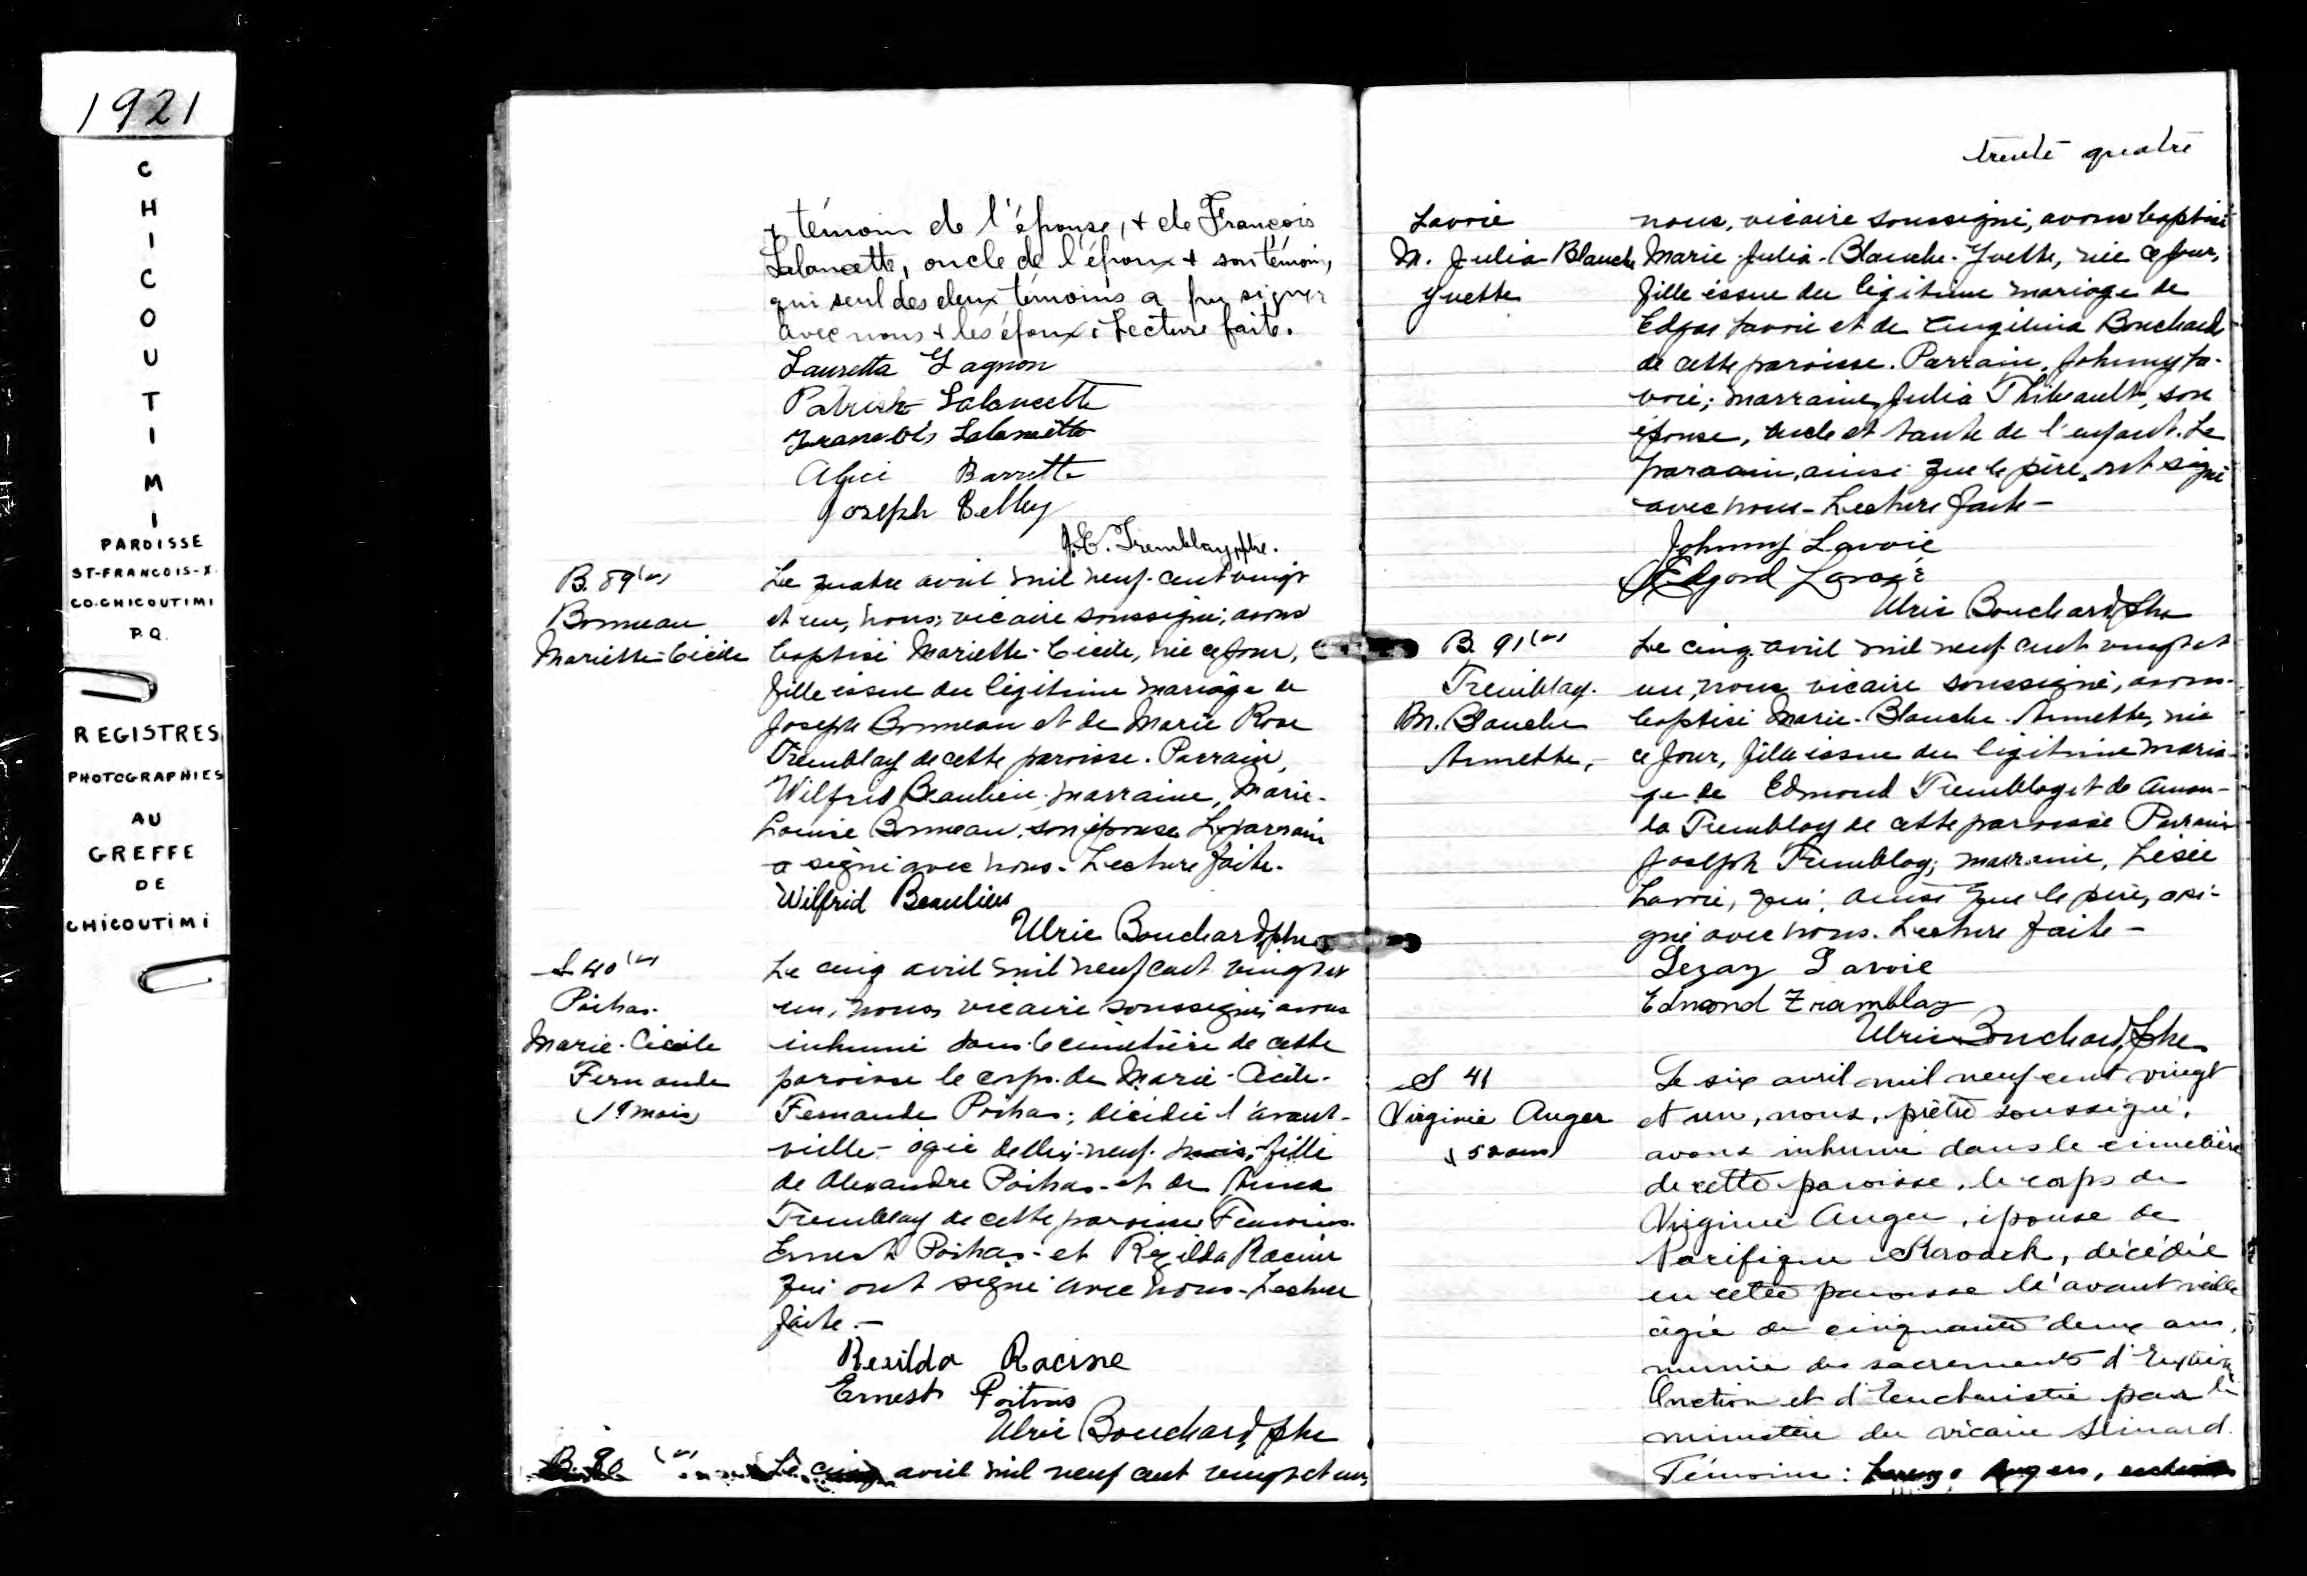 1921
CHICOUTIMI
PAROISSE
ST-FRANCOIS-X.
CO-CHICOUTIMI
P.Q.
REGISTRES
PHOTOGRAPHIES
AU
GREFFE
DE
CHICOUTIMI
+ témoin de l'épouse, + de François
Lalancette, oncle de l'époux + son témoin,
qui seul des deux témoins a pu signer
avec nous + les époux. Lecture faite.
Lauretta Gagnon
Patrick Lalancette
Francois Lalancette
Alice Barrette
Joseph Belley
J.E. Tremblay, ptre.
B. 89
Bonneau
Mariette-Cécile
Le quatre avril mil neuf cent vingt
et un, nous, vicaire soussigné, avons
baptisé Mariette-Cécile, née ce jour,
fille issue du légitime mariage de
Joseph Bonneau et de Marie Rose
Tremblay de cette paroisse. Parrain,
Wilfrid Beaulieu, marraine, Marie-
Louise Bonneau, son épouse. Le parrain
a signé avec nous. Lecture faite.
Wilfrid Beaulieu
Ulric Bouchard, ptre
S 40
Poitras
Marie-Cécile
Fernande
(19 mois)
Le cinq avril mil neuf cent vingt et
un, nous, vicaire soussigné, avons
inhumé dans le cimetière de cette
paroisse le corps de Marie-Cécile-
Fernande Poitras, décédée l'avant-
veille, âgée de dix-neuf mois, fille
de Alexandre Poitras et de Anna
Tremblay de cette paroisse. Témoins
Ernest Poitras et Rézilda Racine
qui ont signé avec nous. Lecture
faite.—
Resilda Racine
Ernest Poitras
Ulric Bouchard, ptre
B. 90
Le cinq avril mil neuf cent vingt et un,
trente quatre
Lavoie
M. Julia Blanche
Yvette
nous, vicaire soussigné, avons baptisé
Marie-Julia-Blanche-Yvette, née ce jour,
fille issue du légitime mariage de
Edgar Lavoie et de Angélina Bouchard
de cette paroisse. Parrain, Johnny La-
voie; marraine, Julia Thibeault, son
épouse, oncle et tante de l'enfant. Le
parrain, ainsi que le père, ont signé
avec nous. Lecture faite —
Johnny Lavoie
Edgard Lavoie
Ulric Bouchard, ptre
B. 91
Tremblay.
M. Blanche
Annette,
Le cinq avril mil neuf cent vingt et
un, nous vicaire soussigné, avons
baptisé Marie-Blanche-Annette, née
ce jour, fille issue du légitime maria-
ge de Edmond Tremblay et de Aman-
da Tremblay de cette paroisse. Parrain
Joseph Tremblay; marraine, Lésée
Lavoie, qui, ainsi que le père, a si-
gné avec nous. Lecture faite —
Lezay Lavoie
Edmond Tramblay
Ulric Bouchard, ptre
S 41
Virginie Auger
52 ans
Le six avril mil neuf cent vingt
et un, nous, prêtre soussigné,
avons inhumé dans le cimetière
de cette paroisse, le corps de
Virginie Auger, épouse de
décédée
en cette paroisse l'avant veille
âgée de cinquante deux ans,
munie des sacrements d'Extrême
Onction et d'Eucharistie par le
ministère du vicaire Simard.
Témoins: Angers,